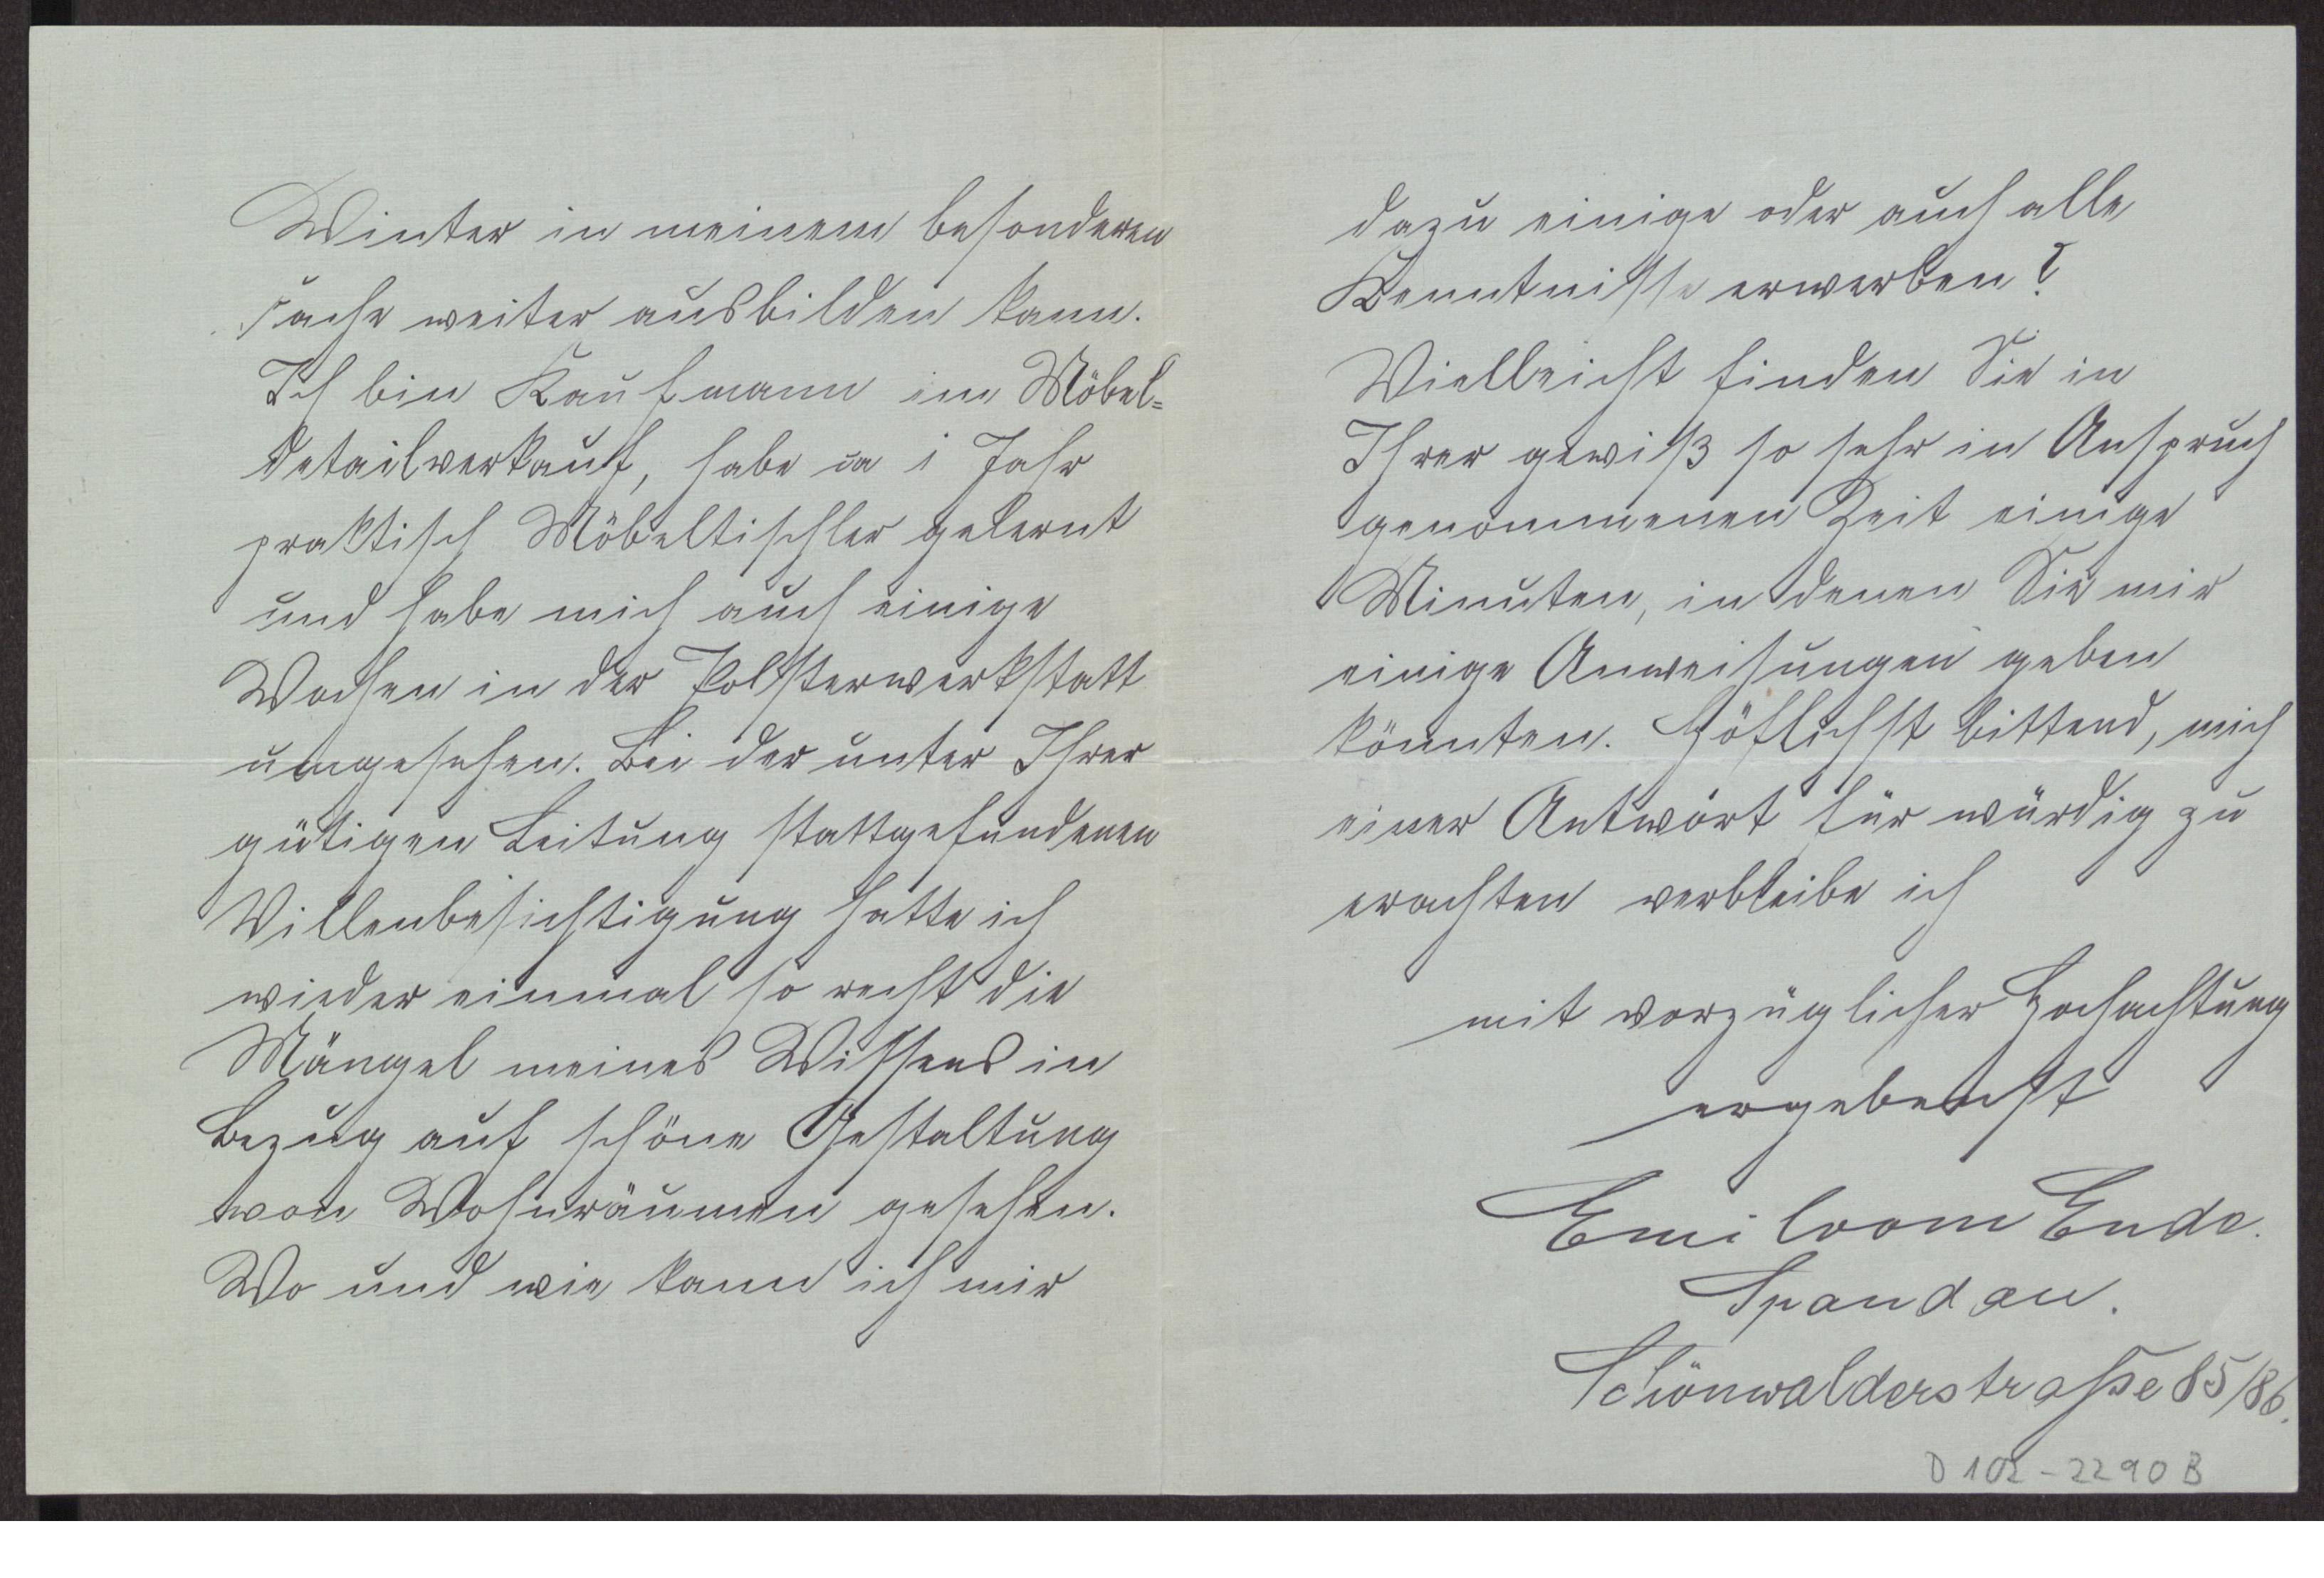 Winter in meinem besonderen
Fache weiter ausbilden kann.
Ich bin Kaufmann im Möbel=
detailverkauf, habe ca 1 Jahr
praktisch Möbeltischler gelernt
und habe mich auch einige
Wochen in der Polsterwerkstatt
umgesehen. Bei der unter Ihrer
gütigen Leitung stattgefundenen
Villenbesichtigung hatte ich
wieder einmal so recht die
Mängel meines Wissens in
Bezug auf schöne Gestaltung
von Wohnräumen gesehen.
Wo und wie kann ich mir
dazu einige oder auch alle
Kenntnisse erwerben?
Vielleicht finden Sie in
Ihrer gewiß so sehr in Anspruch
genommenen Zeit einige
Minuten, in denen Sie mir
einige Anweisungen geben
könnten. Höflichst bittend, mich
einer Antwort für würdig zu
erachten verbleibe ich
mit vorzüglicher Hochachtung
ergebenst
Emil vom Ende.
Spandau.
Schönwalderstraße 85/86.
D 102-2290 B